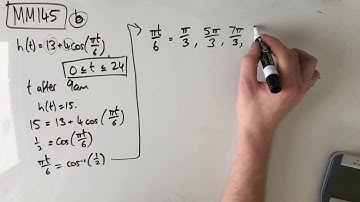 MM145 b
h(t)=13+4cos(πt/6)
0≤t≤24
t after 9am
h(t)=15.
15=13+4cos(πt/6)
1/2=cos(πt/6)
πt/6=cos⁻¹(1/2)
πt/6 = π/3, 5π/3, 7π/3,